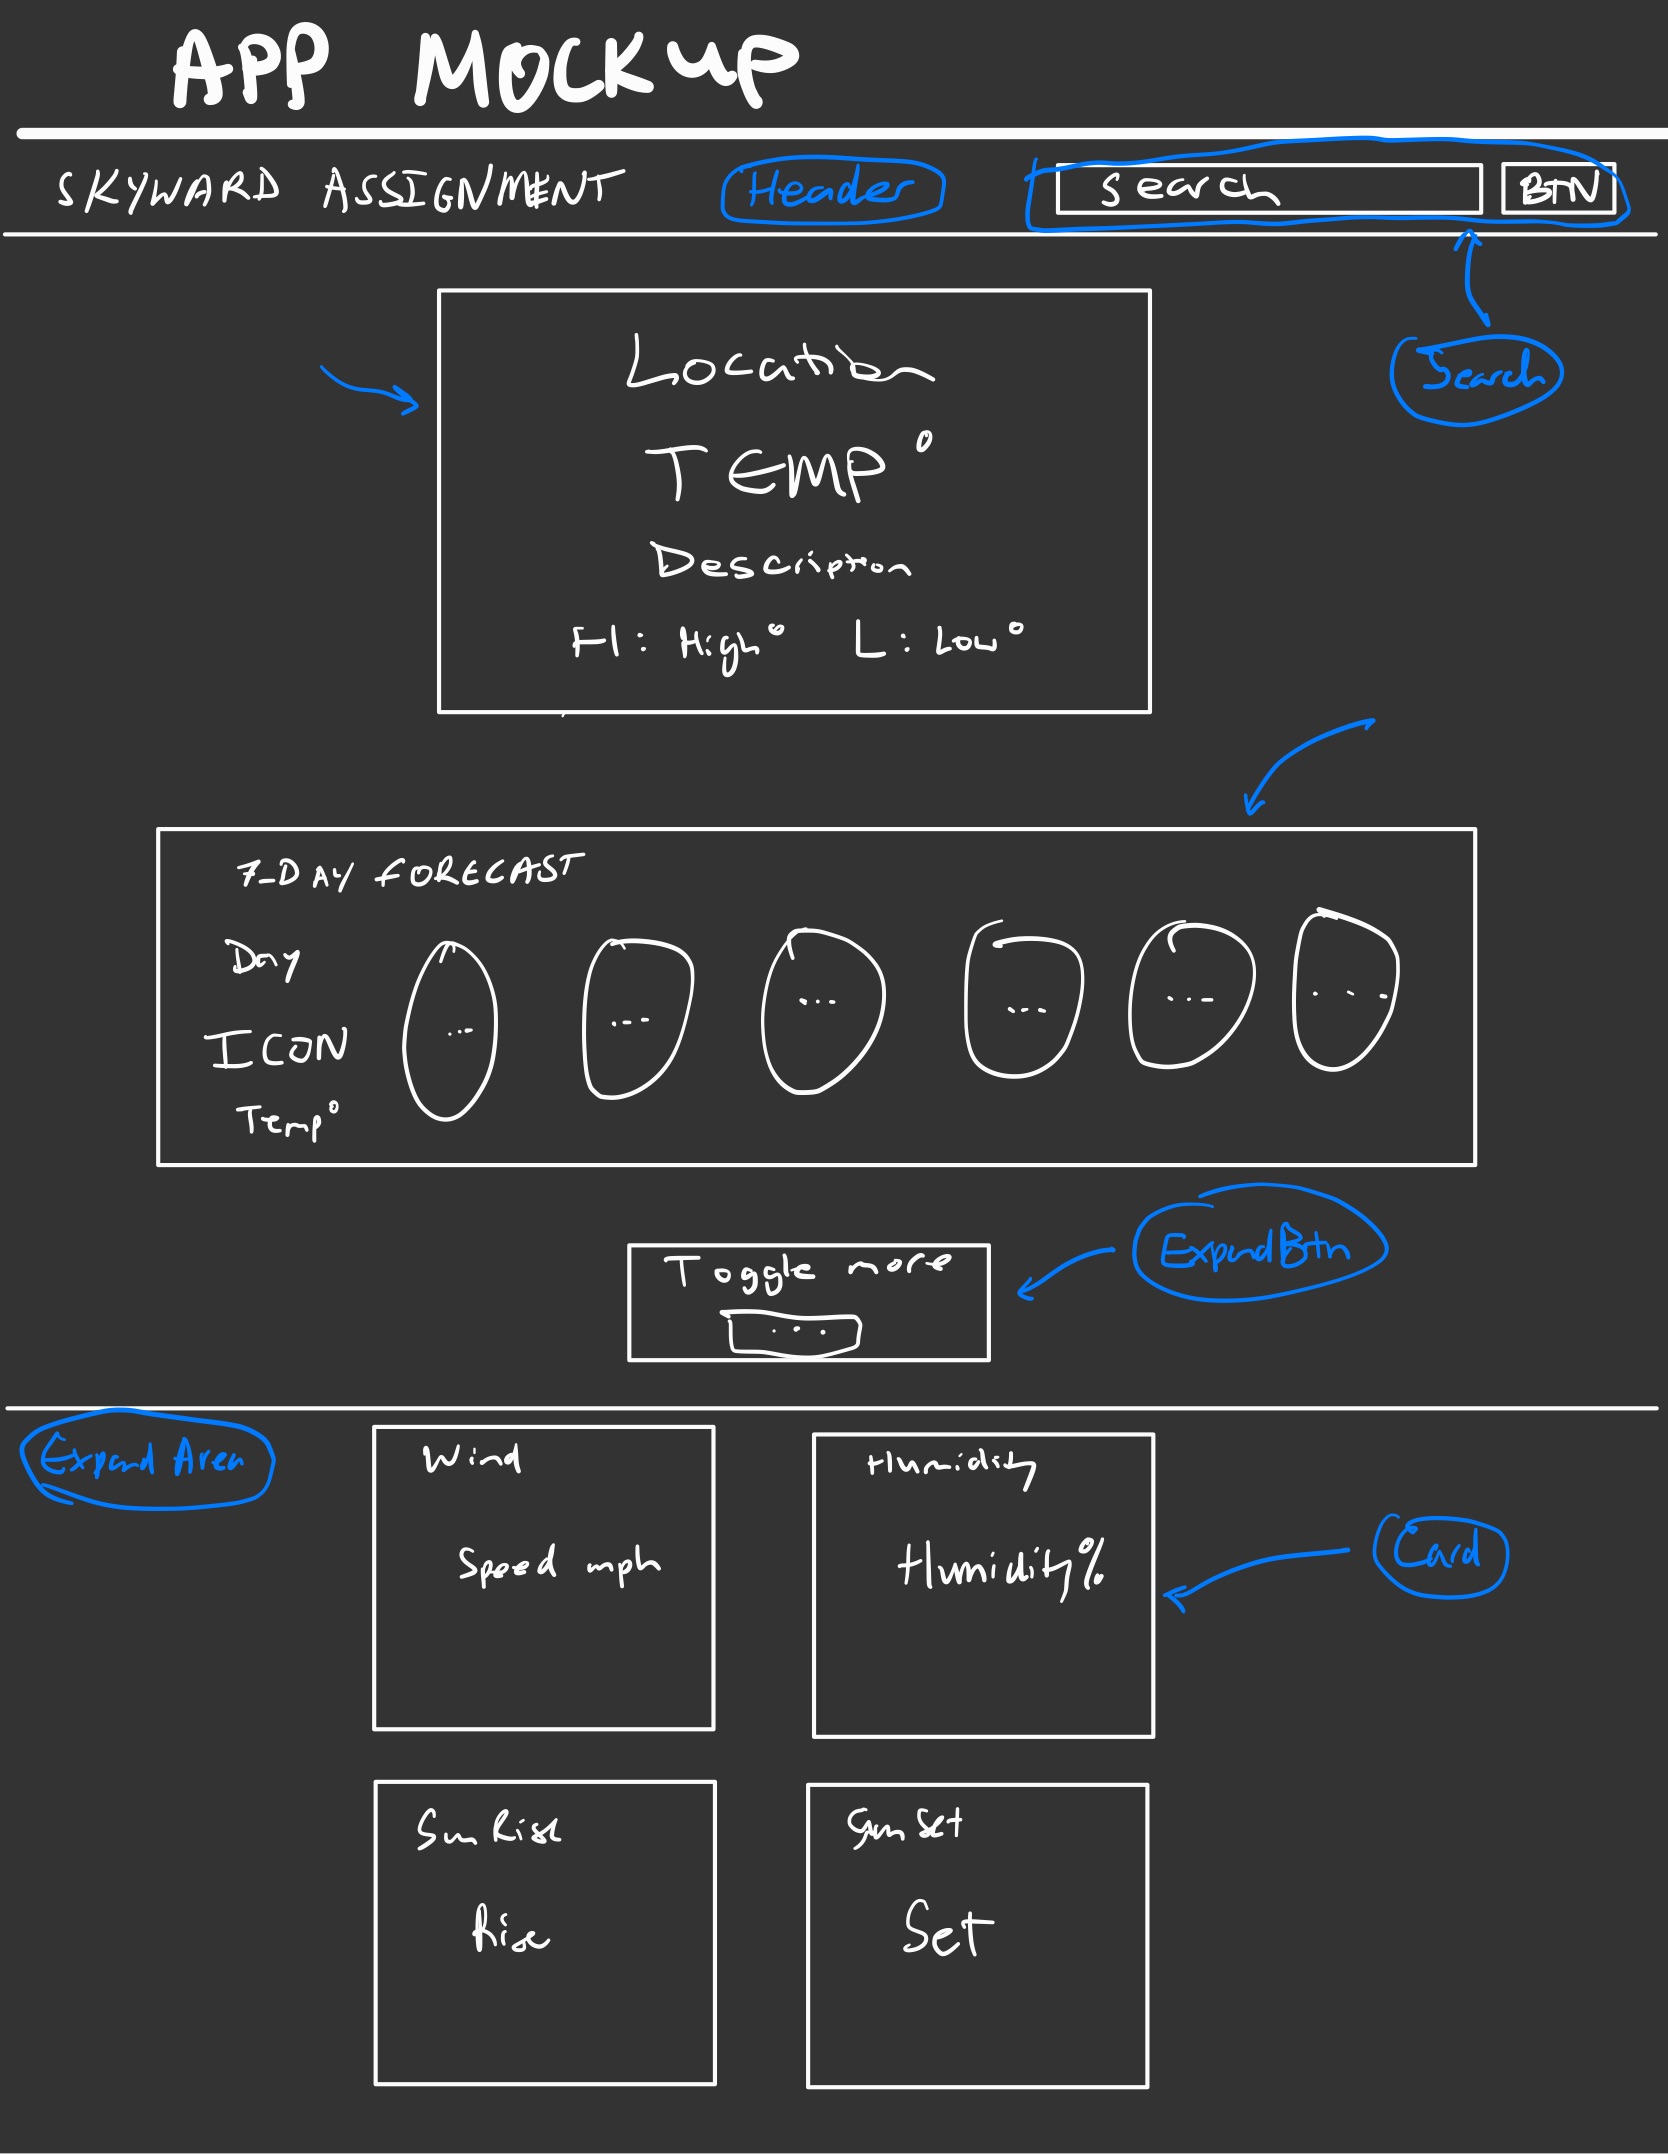 APP MOCKUP
SKYWARD ASSIGNMENT Header Search BTN
Search
Location
TEMP°
Description
H: High° L: Low°
7-DAY FORECAST
Day
ICON
Temp°
...
...
...
...
...
...
ExpandBtn
Toggle more
...
Expand Area
Wind
Speed mph
Humidity
Humidity%
Card
Sun Rise
Rise
Sun Set
Set